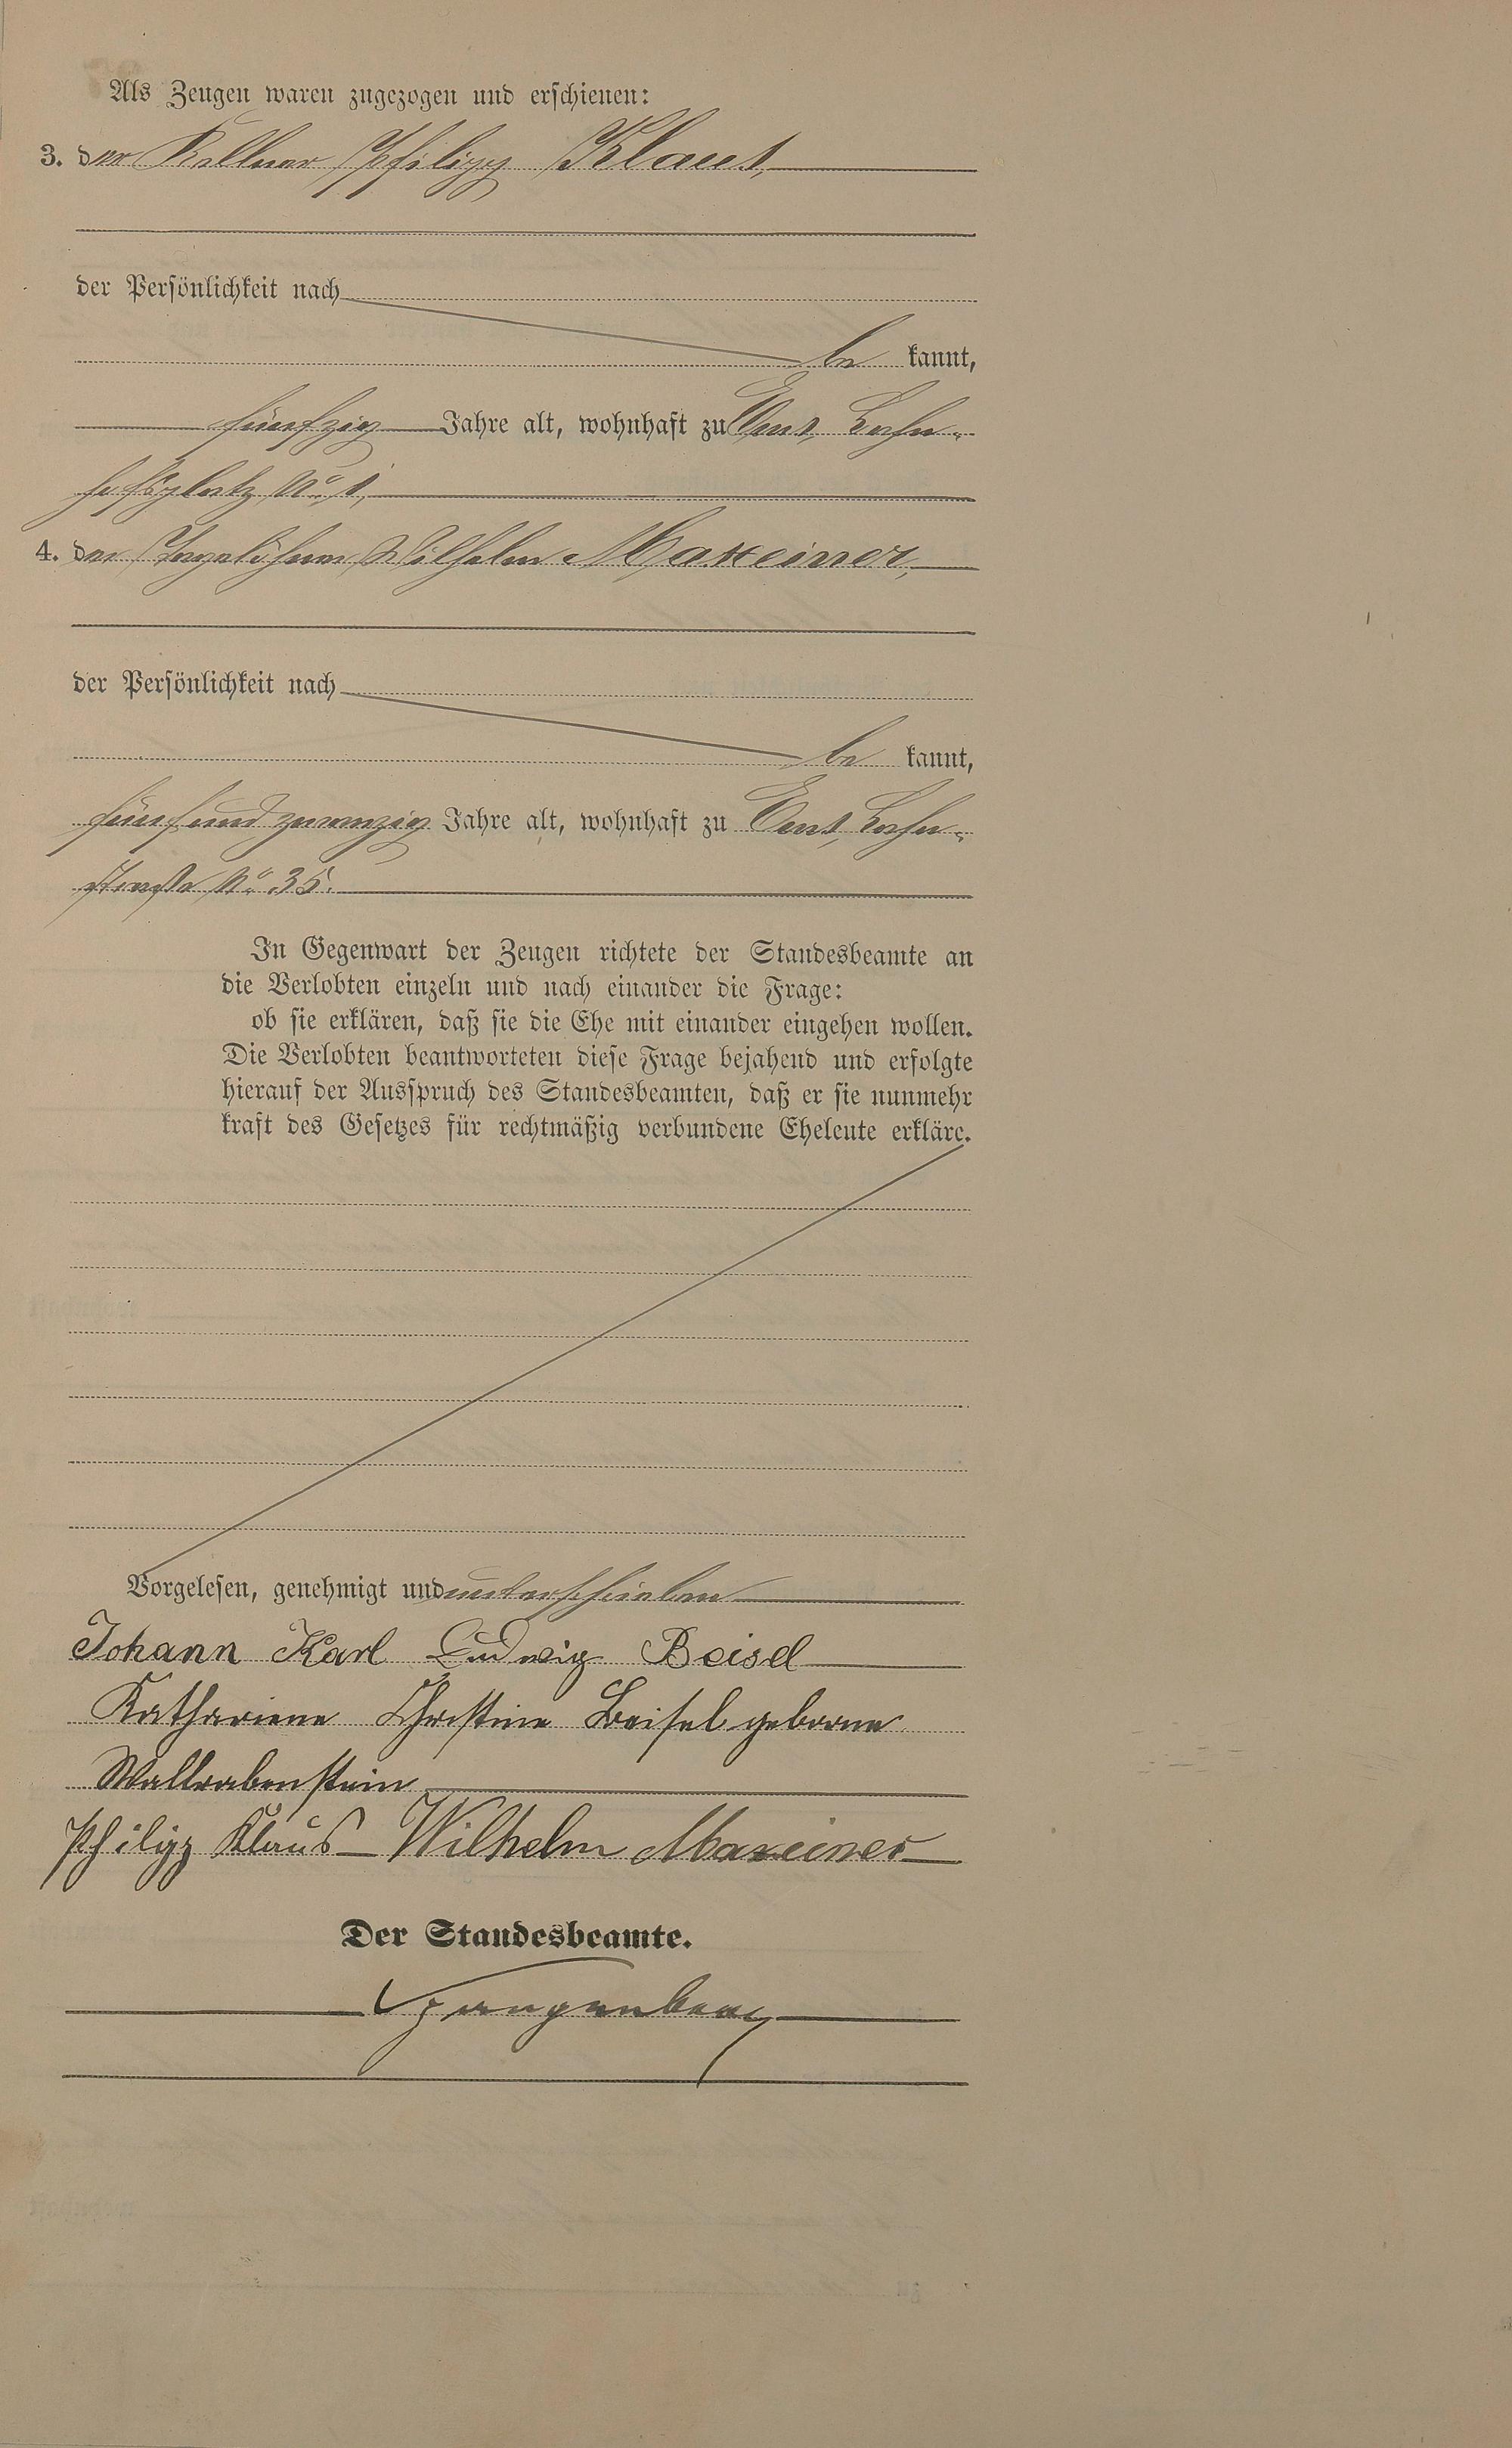 Als Zeugen waren zugezogen und erschienen:
3. der Kellner Philipp Klaus,
der Persönlichkeit nach
be kannt,
fünfzig Jahre alt, wohnhaft zu Ems, Bahn-
hofsplatz No. 1,
4. der Tagelöhner Wilhelm Maxeiner,
der Persönlichkeit nach
be kannt,
fünfundzwanzig Jahre alt, wohnhaft zu Ems, Lahn-
straße No. 35.
In Gegenwart der Zeugen richtete der Standesbeamte an
die Verlobten einzeln und nach einander die Frage:
ob sie erklären, daß sie die Ehe mit einander eingehen wollen.
Die Verlobten beantworteten diese Frage bejahend und erfolgte
hierauf der Ausspruch des Standesbeamten, daß er sie nunmehr
kraft des Gesetzes für rechtmäßig verbundene Eheleute erkläre.
Vorgelesen, genehmigt und unterschrieben
Johann Karl Ludwig Beisel
Kathariene Christine Beisel geborne
Wallrabenstein
Philipp Klaus Wilhelm Maxeiner
Der Standesbeamte.
Spangenberg